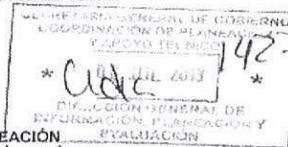 SECRETARÍA GENERAL DE GOBIERNO
COORDINACIÓN DE PLANEACIÓN
Y APOYO TÉCNICO
142-
* JUL 2013 *
DIRECCIÓN GENERAL DE
INFORMACIÓN, PLANEACIÓN Y
EVALUACIÓN
EACIÓN